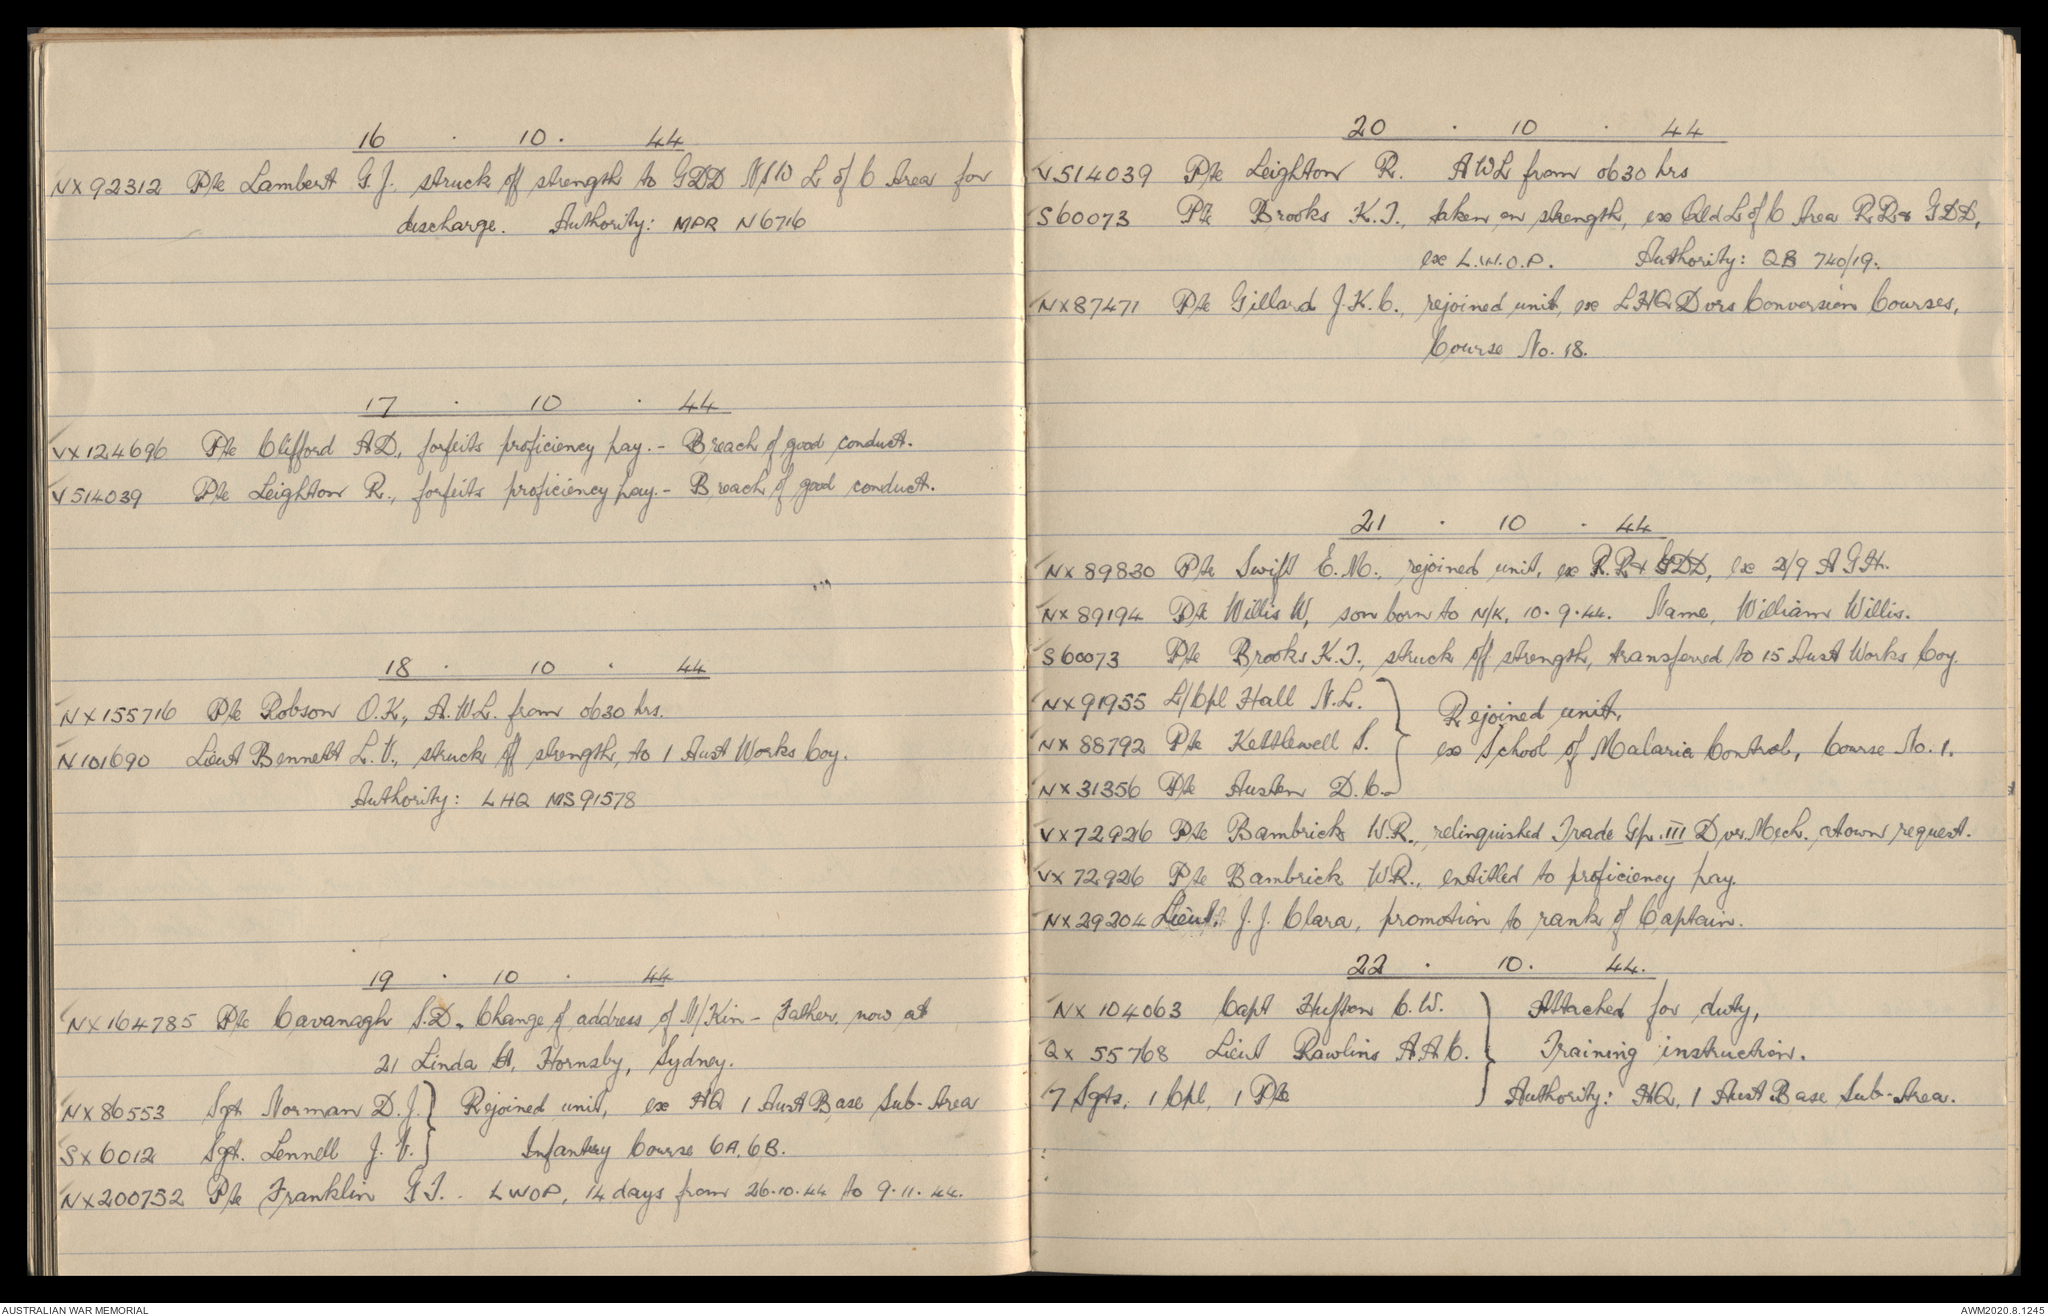 16 . 10 . 44
NX92312 Pte Lambert G.J. struck off strength to GDD NSW L of C Area for
discharge. Authority: MPR N6716
17 . 10 . 44
VX124696 Pte Clifford A.D., forfeits proficiency pay. - Breach of good conduct.
V514039 Pte Leighton R., forfeits proficiency pay. - Breach of good conduct.
18 . 10 . 44
NX155716 Pte Robson O.K., A.W.L. from 0630 hrs.
N101690 Lieut Bennett L.V., struck off strength, to 1 Aust Works Coy.
Authority: LHQ MS91578
19 . 10 . 44
NX164785 Pte Cavanagh S.D. Change of address of N/Kin - Father, now at
21 Linda St, Hornsby, Sydney.
NX86553 Sgt Norman D.J. } Rejoined unit, ex HQ 1 Aust Base Sub-Area
SX6012 Sgt. Lennell J.V. } Infantry Course 6A, 6B.
NX200752 Pte Franklin G.T. . LWOP, 14 days from 26.10.44 to 9.11.44.
20 . 10 . 44
V514039 Pte Leighton R. AWL from 0630 hrs
S60073 Pte Brooks K.T., taken on strength, ex Qld L of C Area R.R.& G.D.D.,
ex L.W.O.P. Authority: QB 740/19.
NX87471 Pte Gillard J.K.C., rejoined unit, ex LHQ Dvrs Conversion Courses,
Course No. 18.
21 . 10 . 44
NX89830 Pte Swift E.M., rejoined unit, ex R.R.& GDD, ex 2/9 AGH.
NX89194 Pte Willis W, son born to N/K, 10.9.44. Name, William Willis.
S60073 Pte Brooks K.T., struck off strength, transferred to 15 Aust Works Coy.
NX91955 L/Cpl Hall N.L. } Rejoined unit,
NX88792 Pte Kettlewell S. } ex School of Malaria Control, Course No. 1.
NX31356 Pte Austen D.C. }
VX72926 Pte Bambrick W.R., relinquished Trade Gp. III Dvr. Mech. at own request.
VX72926 Pte Bambrick W.R., entitled to proficiency pay.
NX29204 Lieut. J.J. Clara, promotion to rank of Captain.
22 . 10. 44.
NX104063 Capt Hufton C.W. } Attached for duty,
QX55768 Lieut Rawlins A.A.C. } Training instruction.
7 Sgts, 1 Cpl, 1 Pte } Authority: HQ, 1 Aust Base Sub-Area.
AUSTRALIAN WAR MEMORIAL
AWM2020.8.1245